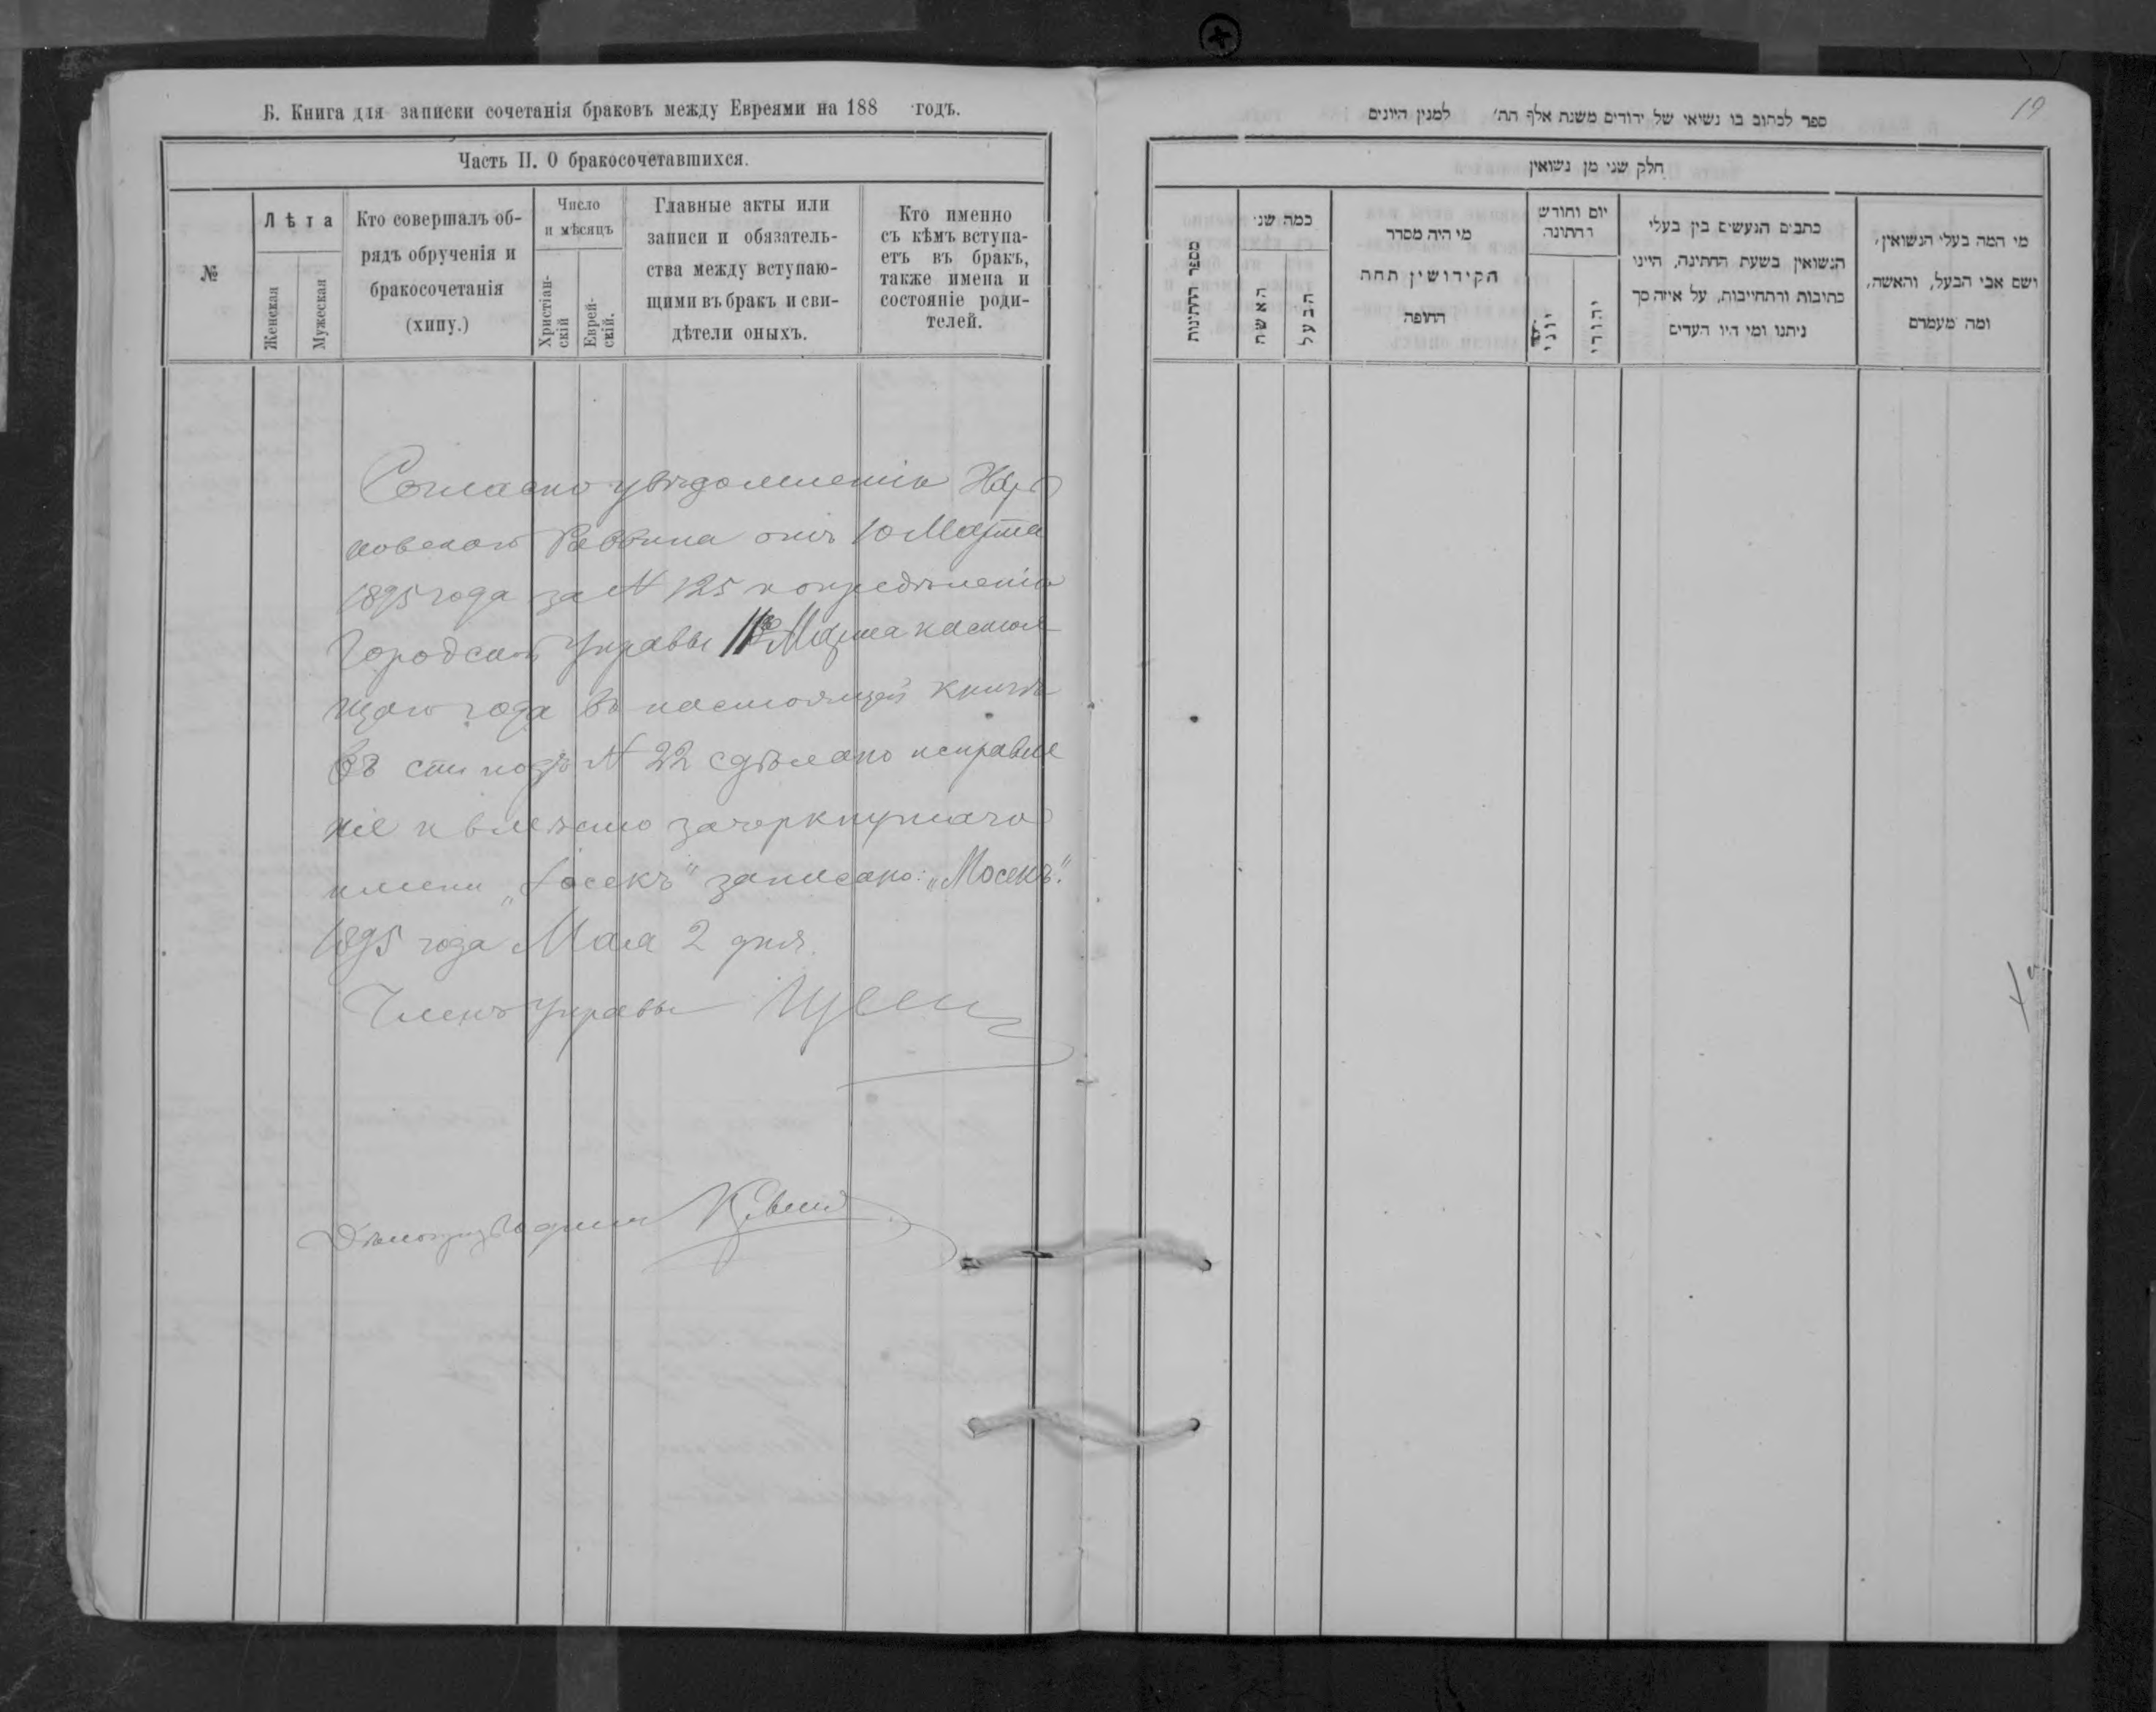 Б. Книга для записки сочетанія браковъ между Евреями на 188 годъ.
Часть II. О бракосочетавшихся.
№
Лѣта
Женская
Мужеская
Кто совершалъ об-
рядъ обрученія и
бракосочетанія
(хипу.)
Число
и мѣсяцъ
Христіан-
скій
Еврей-
скій.
Главные акты или
записи и обязатель-
ства между вступаю-
щими въ бракъ и сви-
дѣтели оныхъ.
Кто именно
съ кѣмъ вступа-
етъ въ бракъ,
также имена и
состояніе роди-
телей.
Согласно увѣдомленію
Раввина отъ 10 Марта
1895 года за N 125 и опредѣленію
Городской Управы Марта настоя
щаго года въ настоящей книгѣ
въ ст подъ N 22 сдѣлано исправле
ніе и вмѣсто зачеркнутаго
имени „Іосекъ" записано: „Мосекъ".
1895 года Мая 2 дня.
Членъ Управы
19
ספר לכתוב בו נשואי של יהודים משנת אלף תת׳ למנין היונים
חלק שני מן נשואין
מספר החתונות
כמה שני
האשה
הבעל
מי היה מסדר
הקידושין תחת
החופה
יום וחודש
החתונה
יוני
יהודי
כתבים הנעשים בין בעלי
הנשואין בשעת החתונה, היינו
כתובות והתחייבות, על איזה סך
ניתנו ומי היו העדים
מי המה בעלי הנשואין,
ושם אבי הבעל, והאשה,
ומה מעמדם